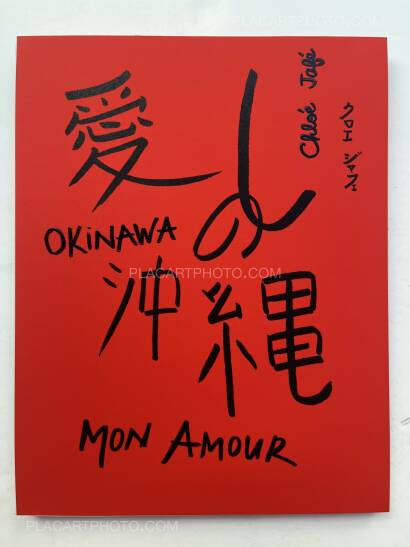 Chloé Jafé
クロエ ジャフェ
愛しの
OKiNAWA
沖縄
MON AMOUR
PLACARTPHOTO.COM
PLACARTPHOTO.COM
PLACARTPHOTO.COM
PLACARTPHOTO.COM